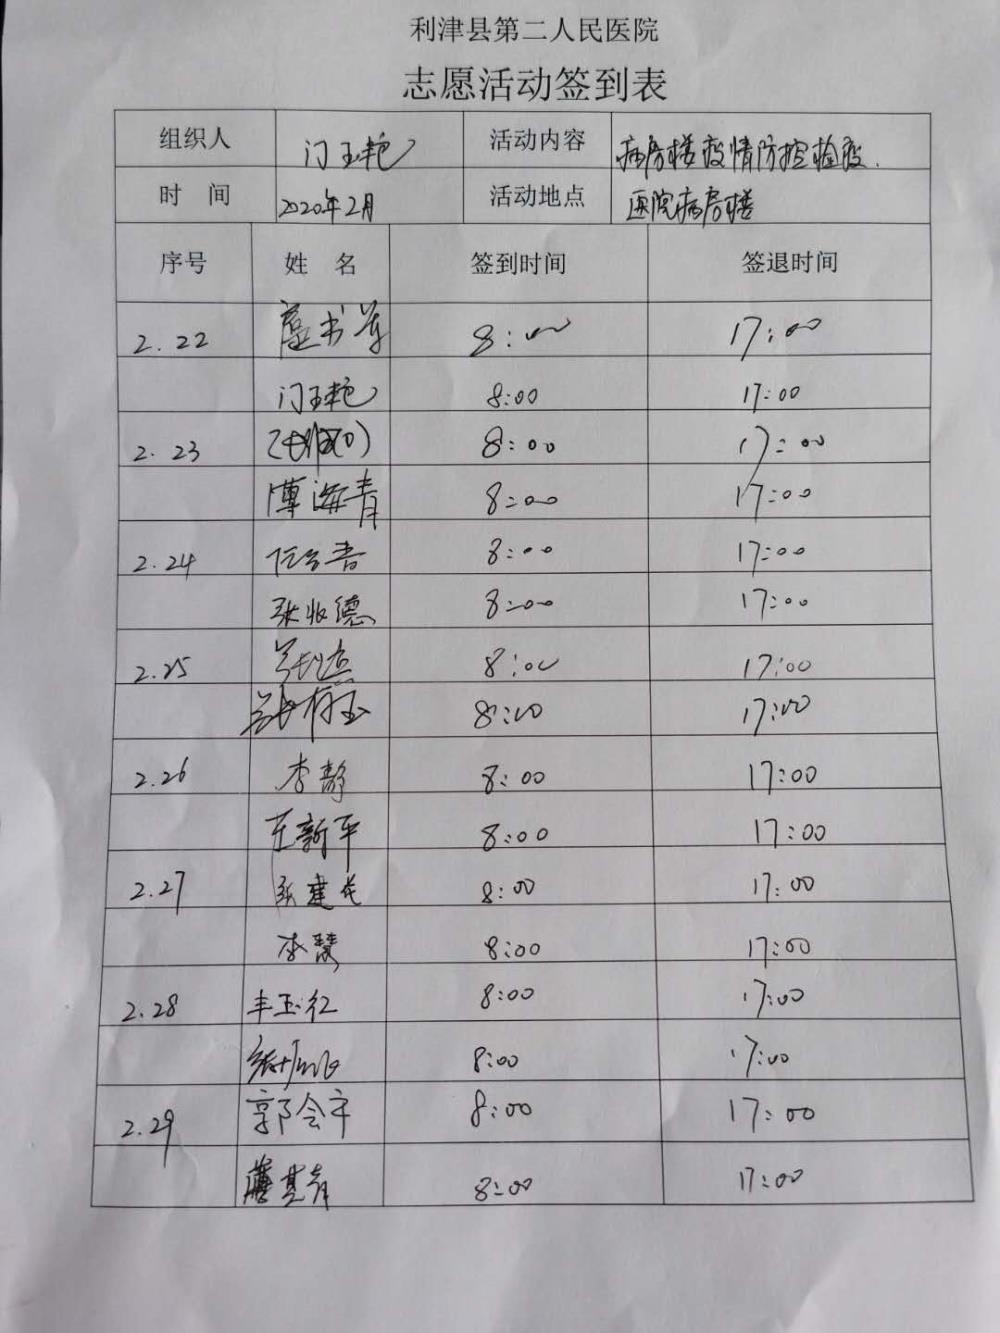 利津县第二人民医院
志愿活动签到表
组织人 门玉艳 活动内容 病房楼疫情防控检疫.
时 间 2020年2月 活动地点 医院病房楼
序号 姓 名 签到时间 签退时间
2.22 8:00 17:00
门玉艳 8:00 17:00
2.23 8:00 17:00
薄海青 8:00 17:00
2.24 8:00 17:00
张收德 8:00 17:00
2.25 8:00 17:00
8:00 17:00
2.26 李静 8:00 17:00
王新平 8:00 17:00
2.27 8:00 17:00
李慧 8:00 17:00
2.28 丰玉红 8:00 17:00
8:00 17:00
2.29 郭会平 8:00 17:00
8:00 17:00